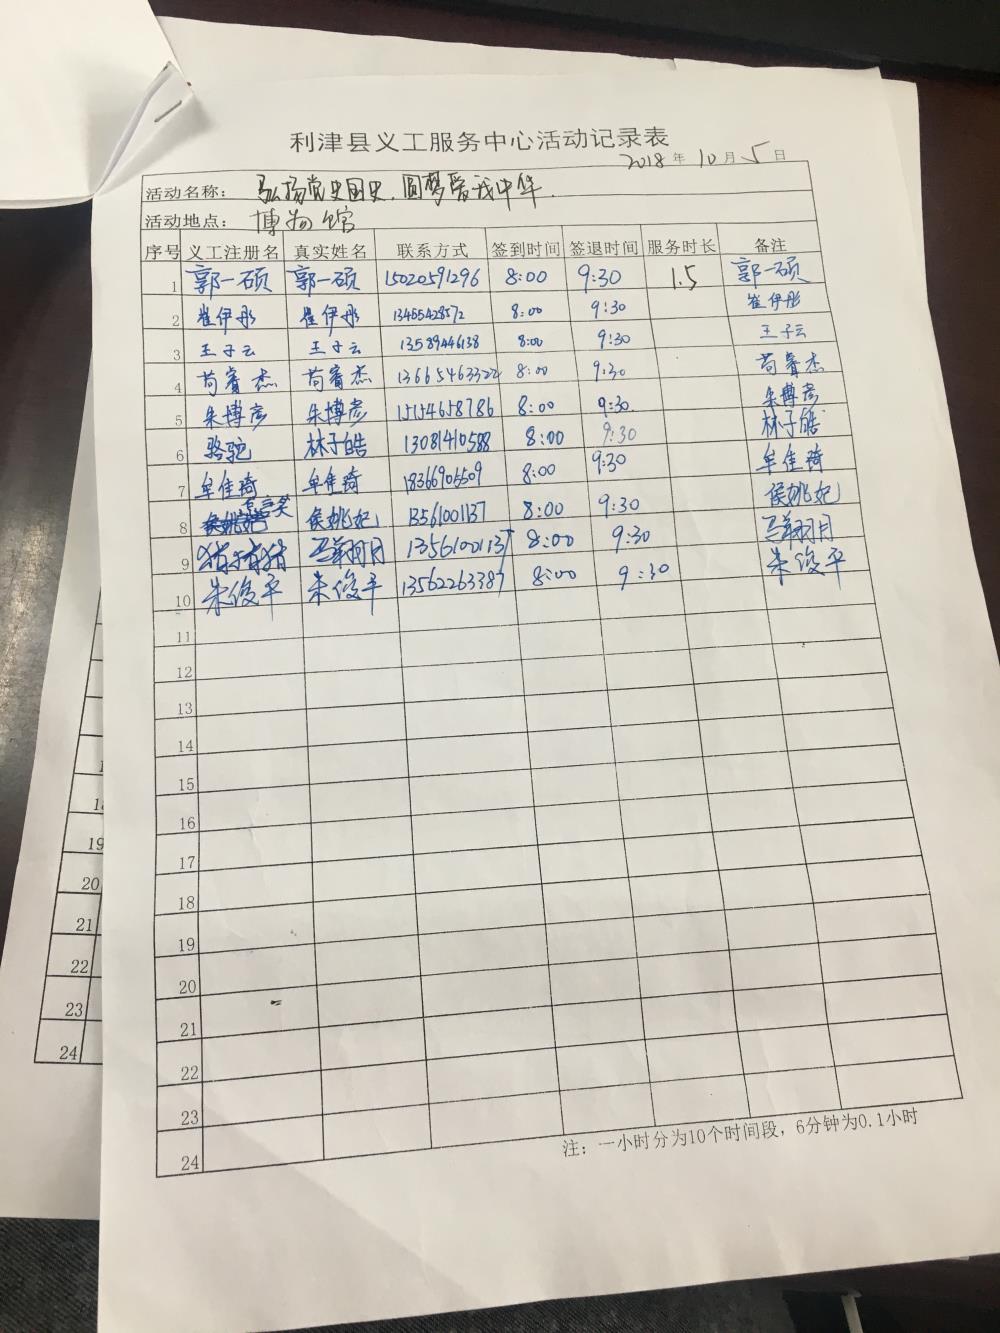 利津县义工服务中心活动记录表
2018年10月5日
活动名称： 弘扬党史国史.圆梦爱我中华.
活动地点： 博物馆
序号 义工注册名 真实姓名 联系方式 签到时间 签退时间 服务时长 备注
1 郭一硕 郭一硕 15020591296 8:00 9:30 1.5 郭一硕
2 崔伊彤 崔伊彤 13455428572 8:00 9:30 崔伊彤
3 王子云 王子云 13589446138 8:00 9:30 王子云
4 苟睿杰 苟睿杰 13665463322 8:00 9:30 苟睿杰
5 朱博彦 朱博彦 15154658786 8:00 9:30 朱博彦
6 骆驼 林子皓 13081410588 8:00 9:30 林子皓
7 牟佳琦 牟佳琦 18366905509 8:00 9:30 牟佳琦
8 侯姚妃 13561001137 8:00 9:30 侯姚妃
9 猪猪猪 13561001137 8:00 9:30
10 朱俊平 朱俊平 13562263387 8:00 9:30 朱俊平
11
12
13
14
15
16
17
18
19
20
21
22
23
24
注：一小时分为10个时间段，6分钟为0.1小时
19
20
21
22
23
24